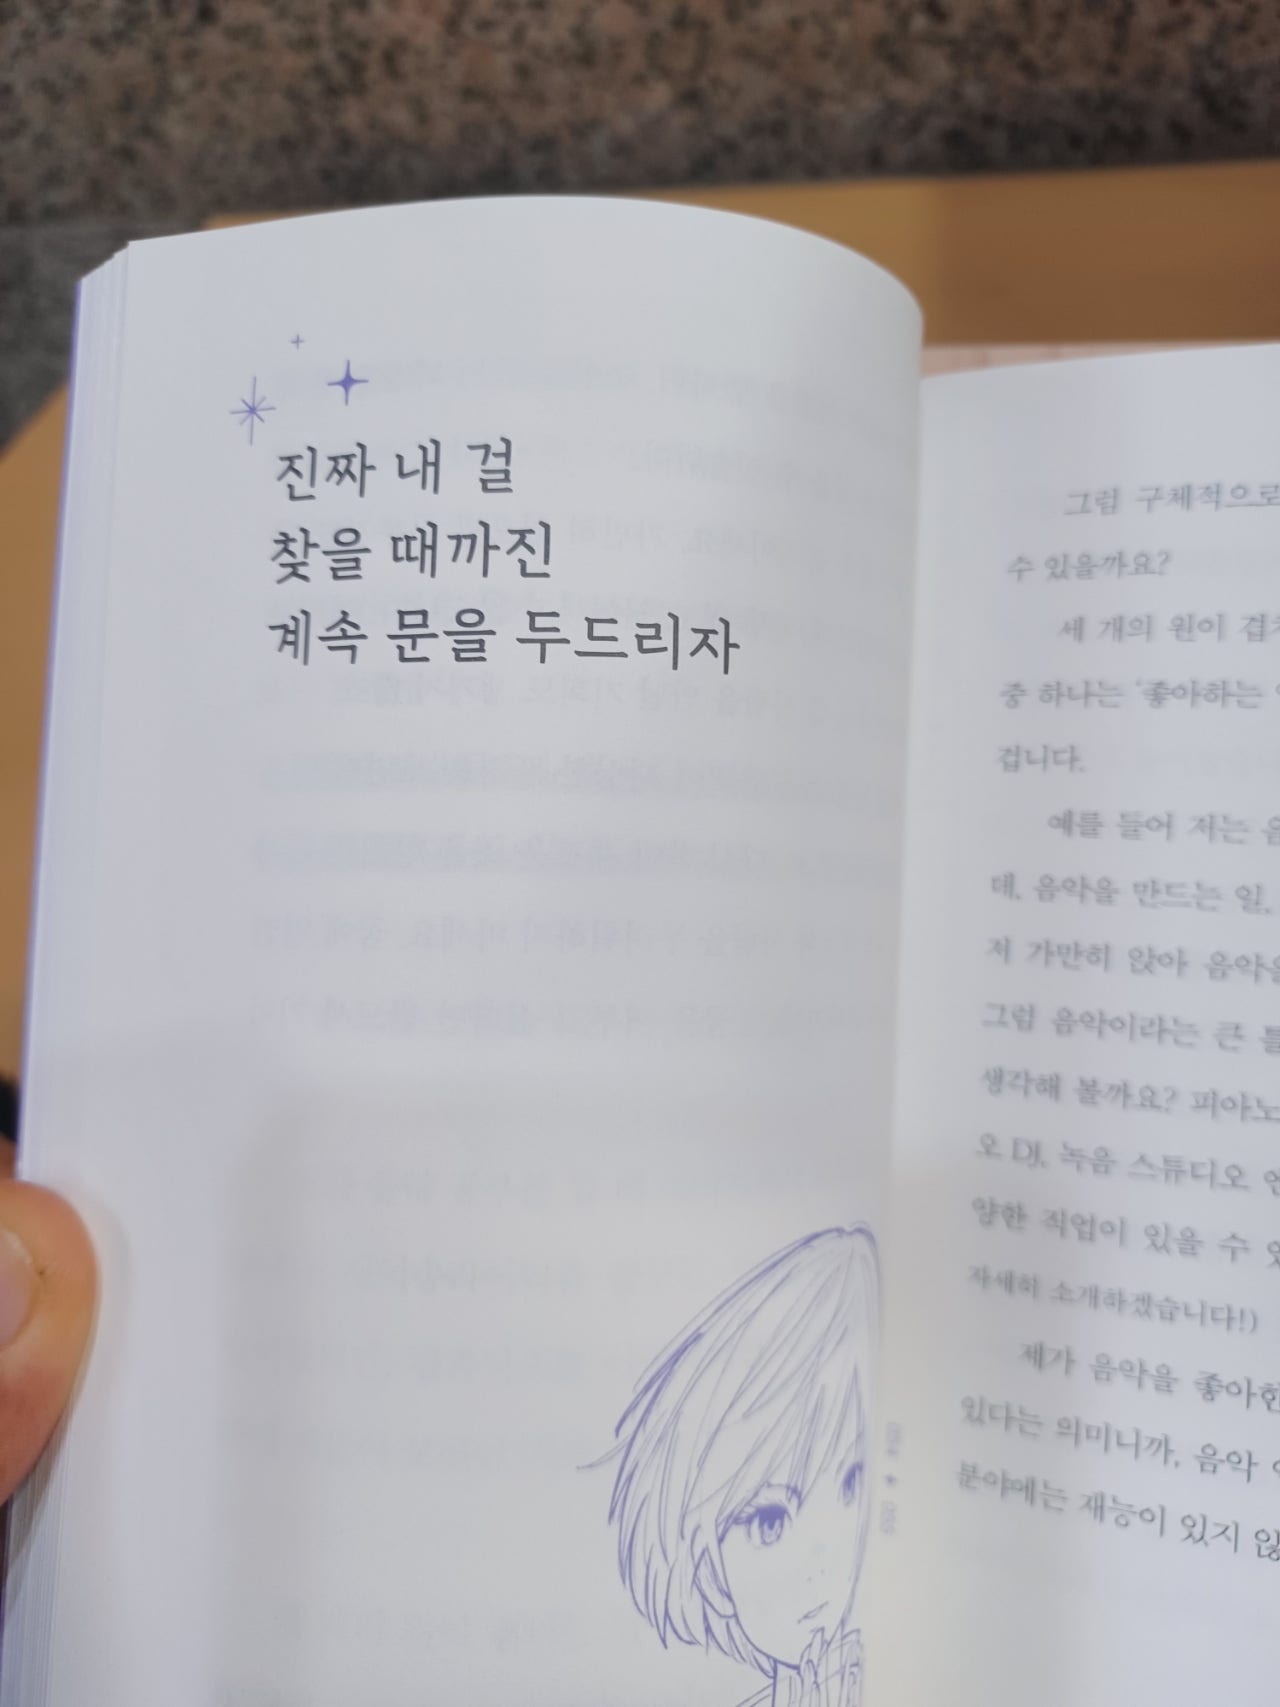 진짜 내 걸
찾을 때까진
계속 문을 두드리자
그럼 구체적으로
수 있을까요?
세 개의 원이 겹치
중 하나는 '좋아하는
겁니다.
예를 들어 저는 음
데, 음악을 만드는 일,
저 가만히 앉아 음악을
그럼 음악이라는 큰 틀
생각해 볼까요? 피아노
오 DJ, 녹음 스튜디오 엔
양한 직업이 있을 수 있
자세히 소개하겠습니다!)
제가 음악을 좋아한
있다는 의미니까, 음악
분야에는 재능이 있지 않